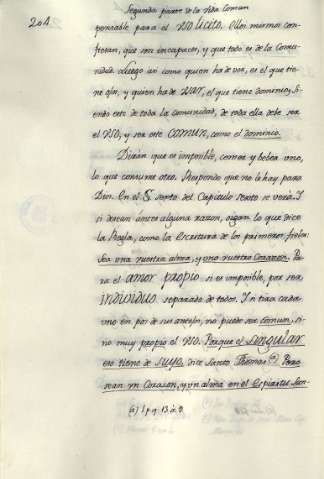 Segunda parte de la vida comun
204
pensable para el uso licito. Ellos mismos con-
fiesan, que son incapaces, y que todo es de la Comu-
nidad. Luego asi como quien ha de ver, es el que tie-
ne ojos, y quien ha de usar, el que tiene dominio, si-
endo este de toda la comunidad, de toda ella debe ser
el uso, y ser este comun, como el dominio.
Dirán que es imposible, comer, y beber uno,
lo que consume otro. Respondo que no le hay para
Dios. En el § sexto del Capitulo sexto se verá. Y
si desean antes alguna razon, oigan lo que dice
la Regla, como la Escritura de los primeros fieles:
Sea una vuestra alma, y uno vuestro Corazon. Pa-
ra el amor propio si es imposible, por ser
individuo separado de todos. Y si tira cada
uno en pos de sus antojos, no puede ser comun, si-
no muy propio el uso. Porque el singular
eso tiene de suyo, dice Santo Thomas (a) Pero
sean un Corazon, y un alma en el Espiritu San-
(a) 1. p. q. 13. á. 9.